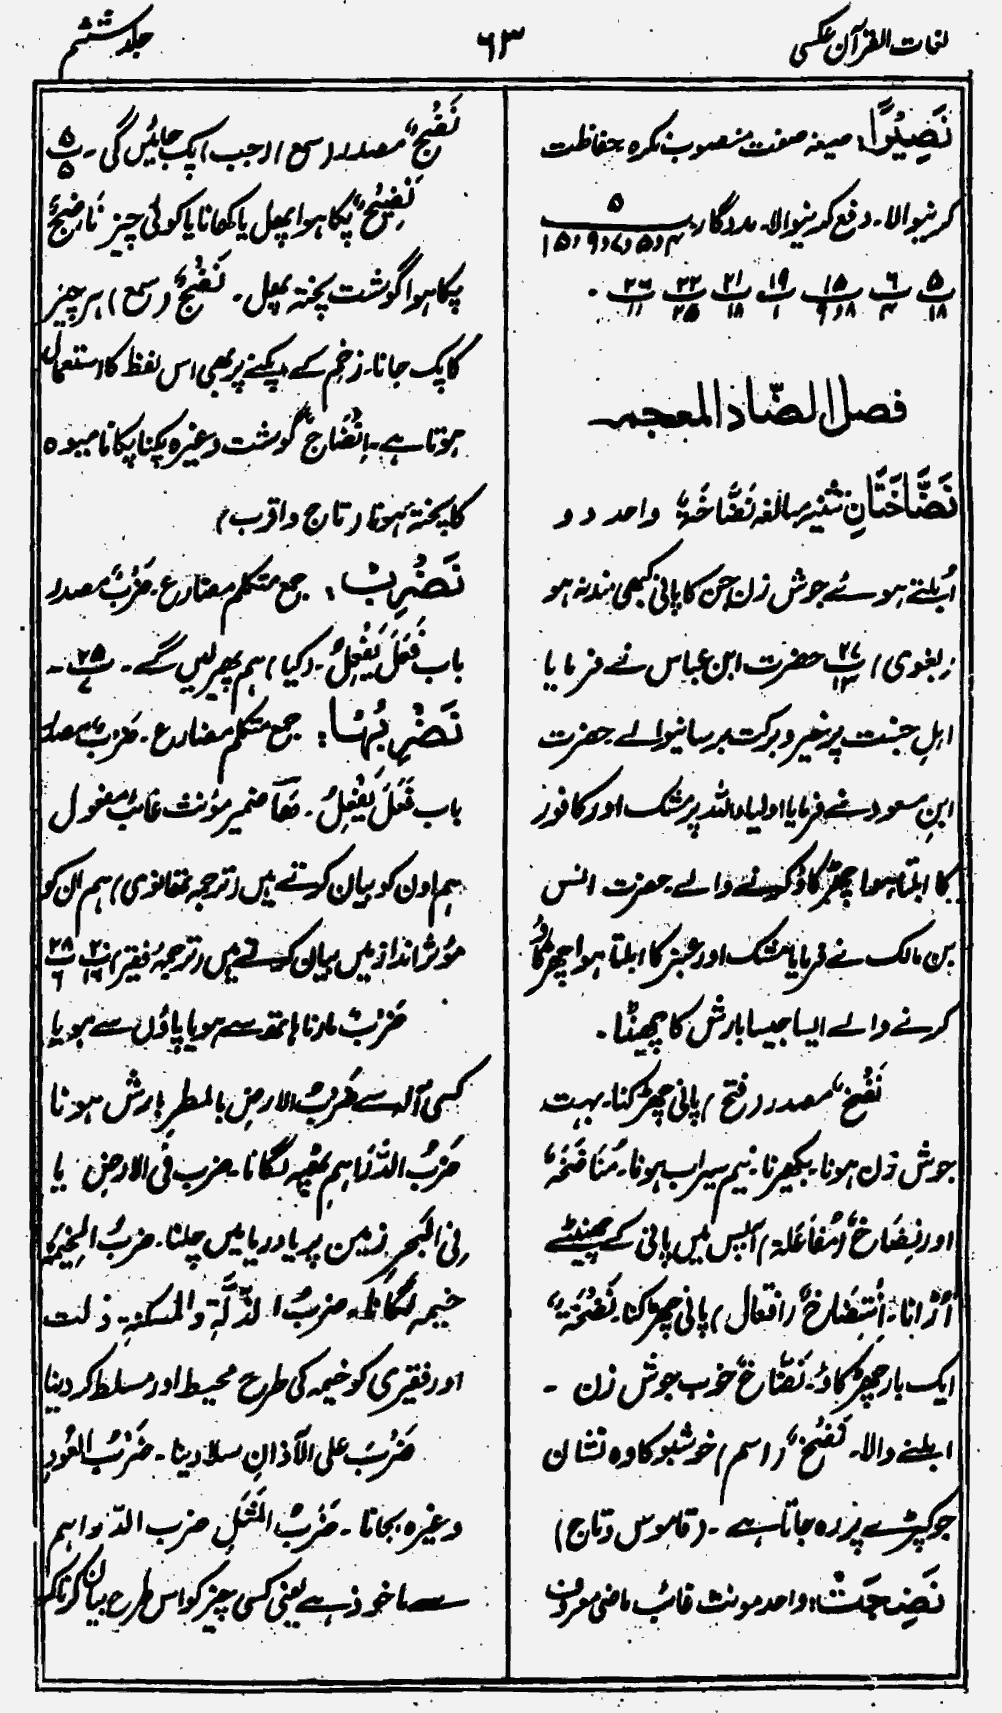 لغات القرآن عکسی
۶۳
جلد ششم
نَصِیْرًا: صیغہ صفت منصوب نکرہ حفاظت
کرنیوالا۔ دفع کرنیوالا۔ مددگار۔ ۵ ۴، ۵، ۷، ۹، ۱۵
۵ ۱۸ ۶ ۴ ۱۵ ۸، ۹ ۱۹ ۱ ۲۱ ۱۸ ۲۲ ۲۵ ۲۶ ۱۱ ۔
فصل الضّاد المعجمہ
نَضَّاخَتَانِ تثنیہ مبالغہ نَضَّاخَۃٌ واحد دو
اُبلتے ہوئے جوش زن جن کا پانی کبھی بند نہ ہو
(بغوی) ۲۷ ۱۳ حضرت ابن عباس نے فرمایا
اہلِ جنت پر خیر و برکت برسانیوالے۔ حضرت
ابنِ مسعود نے فرمایا اولیاء اللہ پر مشک اور کافور
کا ابلتا ہوا چھڑکاؤ کرنے والے۔ حضرت انس
بن مالک نے فرمایا مشک اور عنبر کا ابلتا ہوا چھڑکاؤ
کرنے والے ایسا جیسا بارش کا چھینٹا۔
نَضْخٌ مصدر (فتح) پانی چھڑکنا۔ بہت
جوش زن ہونا۔ بکھیرنا۔ نیم سیراب ہونا۔ مُنَاضَخَۃٌ
اور نِضَاخٌ (مُفَاعَلۃ) آپس میں پانی کے چھینٹے
اُڑانا۔ اِنْتِضَاخٌ (افتعال) پانی چھڑکنا نَضْخَۃٌ
ایک بار چھڑکاؤ۔ نَضَّاخٌ خوب جوش زن ۔
ابلنے والا۔ نَضْخٌ (اسم) خوشبو کا وہ نشان
جو کپڑے پر رہ جاتا ہے ۔ (قاموس و تاج)
نَضِجَتْ: واحد مونث غائب ماضی معروف
نَضْجٌ مصدر (سمع) (جب) پک جائیں گی۔ پ ۵ ۵
نَضِیْجٌ پکا ہوا پھل یا کھانا یا کوئی چیز نَاضِجٌ
پکا ہوا گوشت پختہ پھل۔ نَضْجٌ (سمع) ہر چیز
کا پک جانا۔ زخم کے پکنے پر بھی اس لفظ کا استعمال
ہوتا ہے۔ اِنْضَاجٌ گوشت وغیرہ پکنا پکانا میوہ
کا پختہ ہونا (تاج و اقرب)
نَضْرِبُ: جمع متکلم مضارع۔ ضَرْبٌ مصدر
باب فَعَلَ یَفْعِلُ۔ (کیا) ہم پھیر لیں گے۔ پ ۲۵ ۷ ۔
نَضْرِبُہَا: جمع متکلم مضارع۔ ضَرْبٌ مصدر
باب فَعَلَ یَفْعِلُ۔ ھَا ضمیر مؤنث غائب مفعول
ہم اون کو بیان کرتے ہیں (ترجمہ تھانوی) ہم ان کو
مؤثر انداز میں بیان کرتے ہیں (ترجمہ فقیر) پ ۲۰ ۱۶ پ ۲۸ ۶
ضَرْبٌ مارنا ہاتھ سے ہو یا پاؤں سے ہو یا
کسی آلہ سے ضَرْبُ الارضِ بالمطر بارش ہونا
ضَرْبُ الدَّرَاہِم ٹھپہ لگانا۔ ضرب فی الارضِ یا
فی البَحْر زمین پر یا دریا میں چلنا۔ ضربُ الخِیْمَۃِ
خیمہ لگانا۔ ضربُ الذِّلَّۃِ والمسکنۃِ ذلت
اور فقیری کو خیمہ کی طرح محیط اور مسلط کر دینا
ضَرْبُ علی الآذانِ سلا دینا۔ ضَرْبُ العُوْدِ
وغیرہ بجانا۔ ضَرْبُ المَثَلِ ضرب الدّراہم
سے ماخوذ ہے یعنی کسی چیز کو اس طرح بیان کرنا کہ